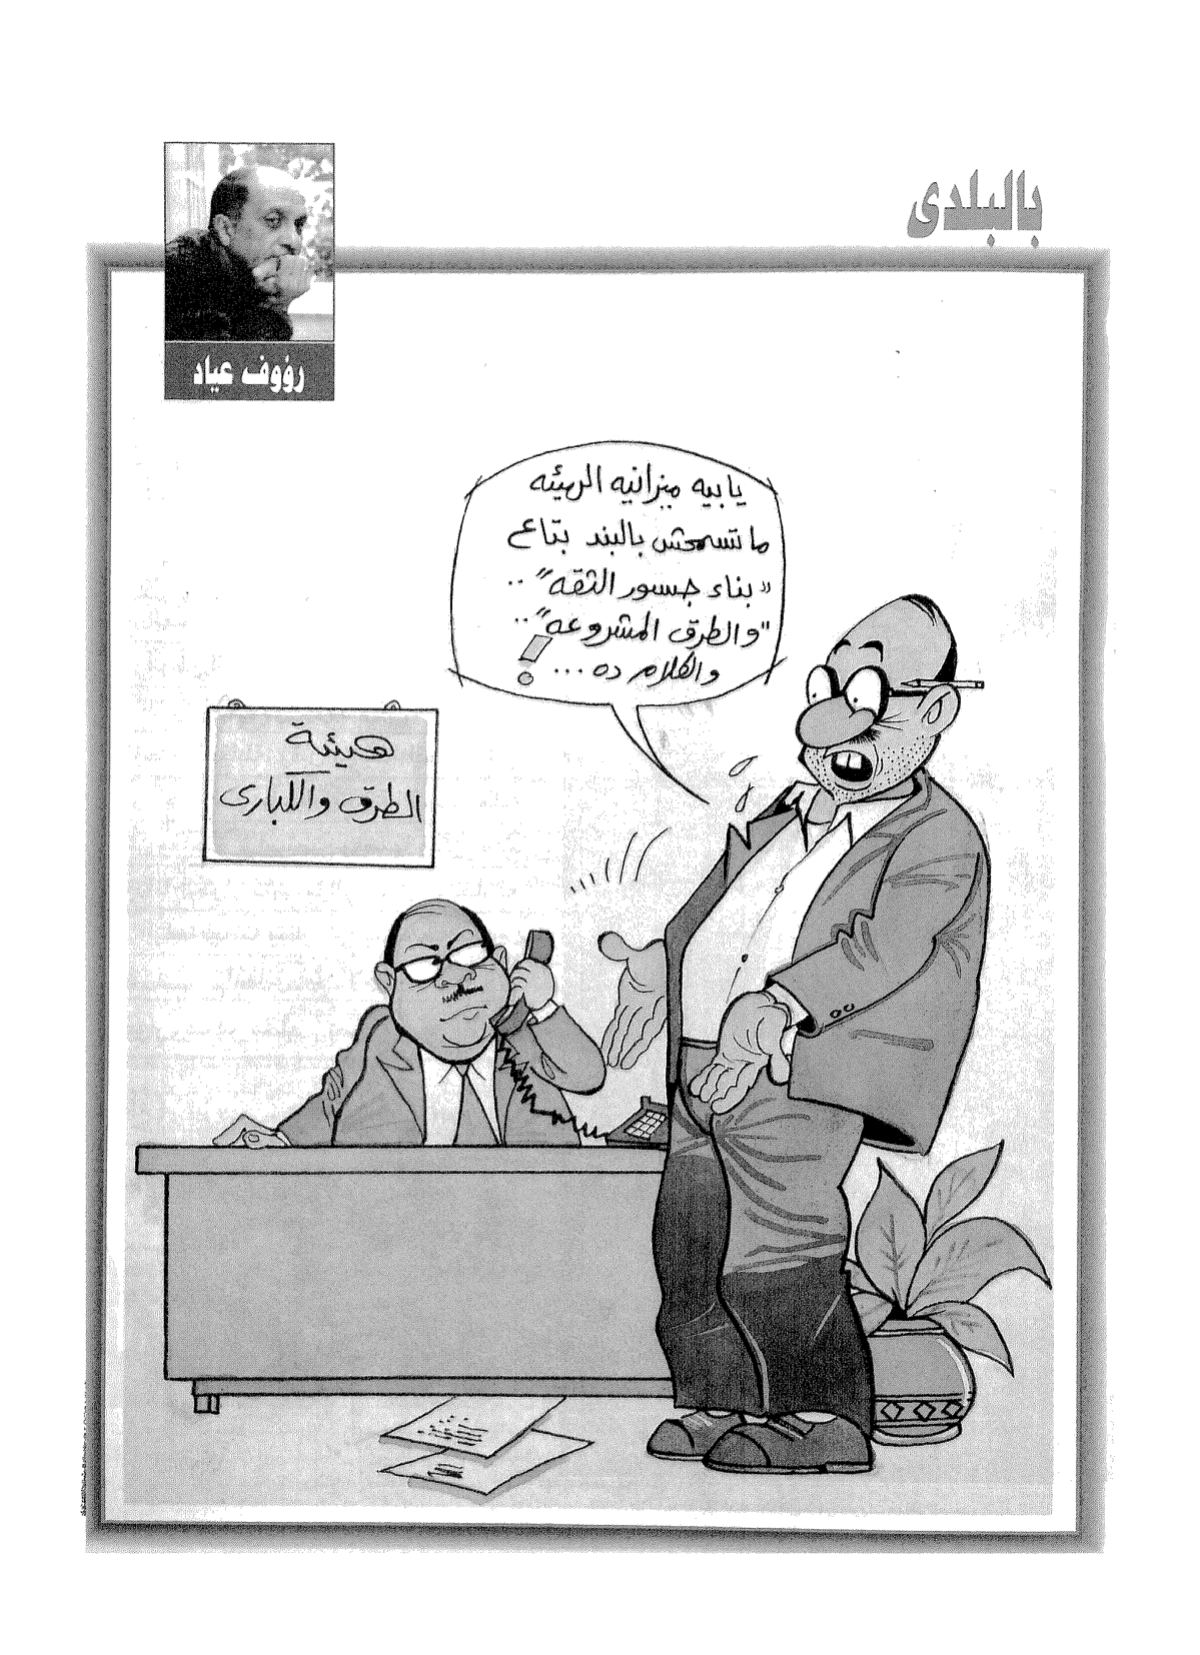 بالبلدى
رؤوف عياد
يابيه ميزانيه الهيئه
ماتسمحش بالبند بتاع
"بناء جسور الثقه"..
"والطرق المشروعه"..
والكلام ده ... !
هيئة
الطرق والكبارى